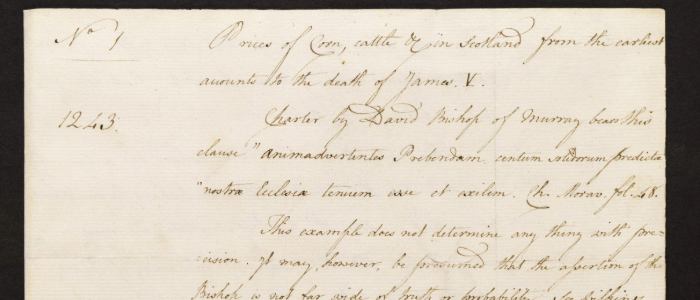 No 1
Prices of Corn, cattle &c in Scotland from the earliest
acounts to the death of James. V.
1243.
Charter by David Bishop of Murray bears this
clause "animadvertentes Prebendam centum solidorum predicta
"nostræ Ecclesiæ tenuem esse et exilem. Ch. Morav. fol. 48.
This example does not determine any thing with pre=
cision. It may, however, be presumed that the assertion of the
Bishop is not far wide of truth or probability